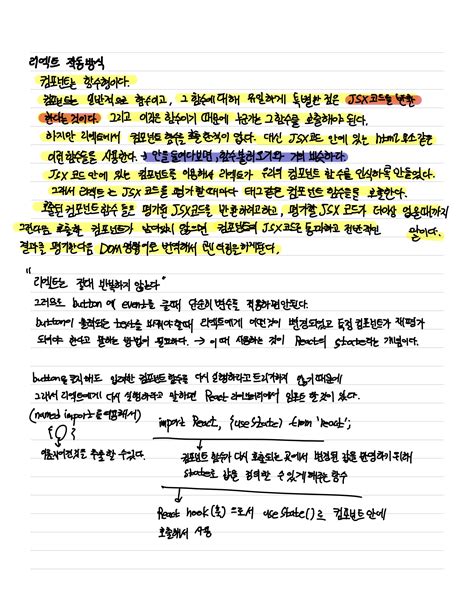 리액트 작동방식
컴포넌트는 함수형이다.
컴포넌트는 일반적으로 함수이고, 그 함수에 대해 유일하게 특별한 점은 JSX코드를 반환
한다는 것이다. 그리고 이것은 함수이기 때문에 누군가는 그 함수를 호출해야 된다.
하지만 리액트에서 컴포넌트 함수를 호출한적이 없다. 대신 JSX코드 안에 있는 html요소같은
이런 함수들을 사용한다. → 안을 들여다보면, 함수불러오기와 거의 비슷하다.
JSX 코드 안에 있는 컴포넌트를 이용해서 리액트가 우리의 컴포넌트 함수를 인식하도록 만들었다.
그래서 리액트는 JSX 코드를 평가할 때마다 태그같은 컴포넌트 함수들을 호출한다.
호출된 컴포넌트 함수들은 평가된 JSX코드를 반환하려고하고, 평가할 JSX 코드가 더이상 없을때까지
그런다음 호출할 컴포넌트가 남아있지 않으면 컴포넌트의 JSX코드를 통과하고 전반적인 말이다.
결과를 평가한다음 DOM명령어로 번역해서 렌더링을하게된다.
"리액트는 절대 반복하지 않는다"
그러므로 button 에 event를 줄때 단순히 변수를 적용하면안된다.
button이 클릭되는 text를 바꿔야 할때 리액트에게 어떤것이 변경되었고 특정 컴포넌트가 재평가
되어야 한다고 말하는 방법이 필요하다. → 이때 사용하는 것이 React의 State라는 개념이다.
button을 클릭해도 일러한 컴포넌트 함수를 다시 실행하라고 트리거하지 않기때문에
그래서 리액트에게 다시 실행하라고 말하려면 React 라이브러리에서 임포트 할것이 있다.
(named import를이용해서)
{ }
이름지어진것을 추출할 수있다.
import React, {useState} from 'react';
컴포넌트 함수가 다시 호출되는 곳에서 변경된 값을 반영하기위해
state로 값을 정의할 수있게 해주는 함수
React hook(훅) 으로서 useState()로 컴포넌트안에
호출해서 사용